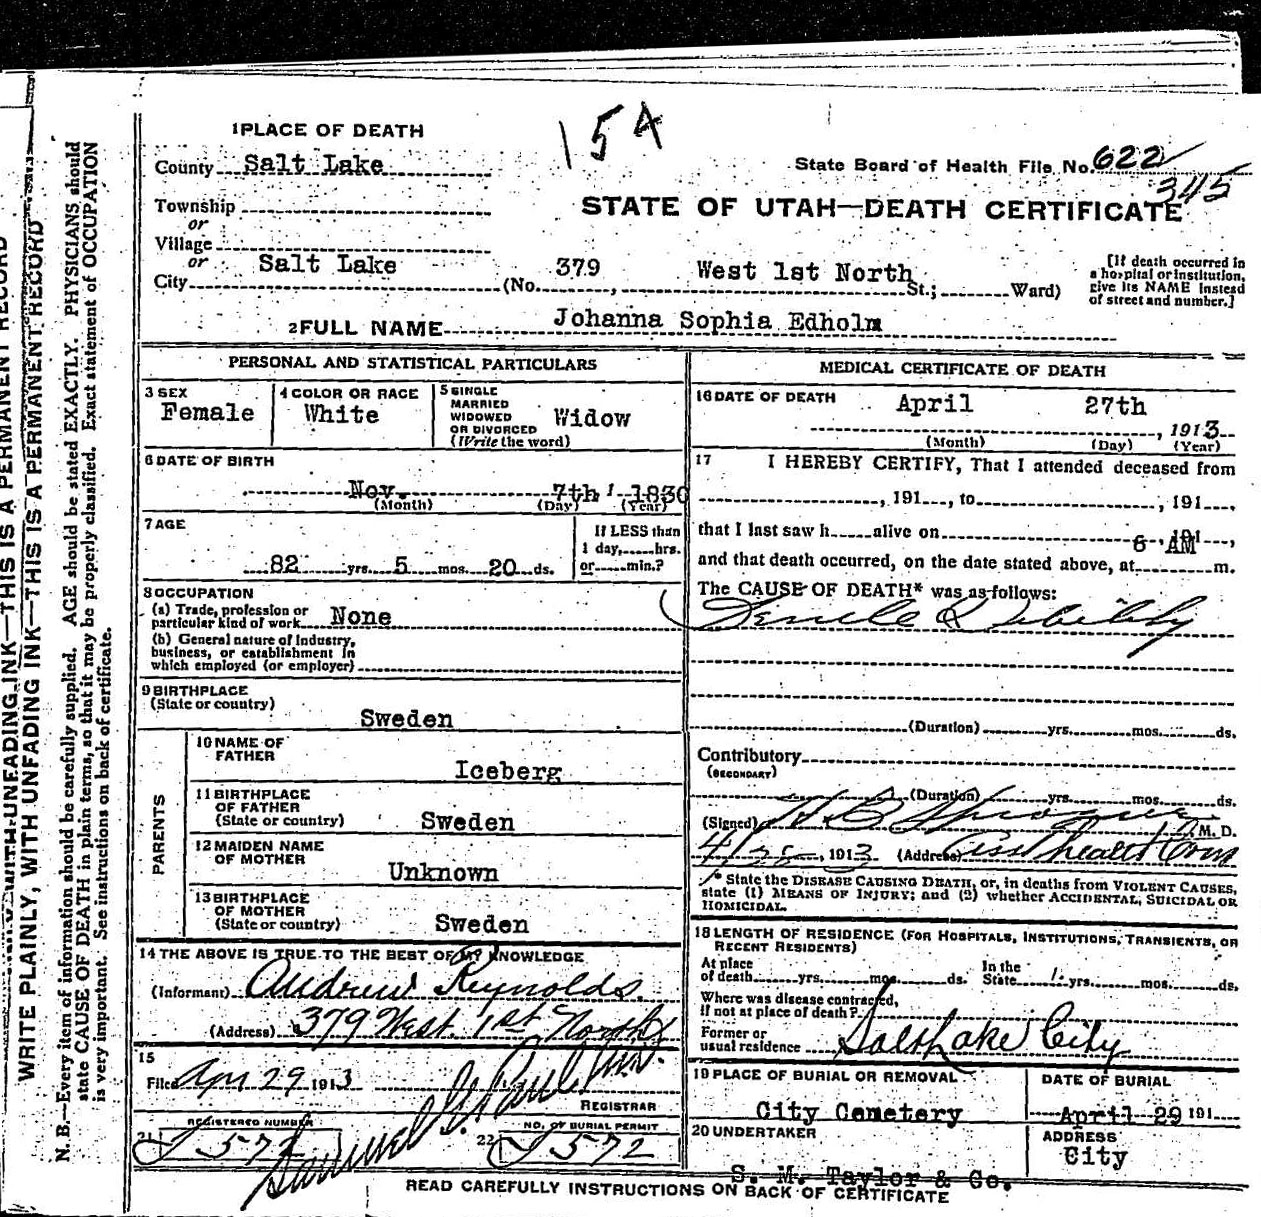 154
1 PLACE OF DEATH
County Salt Lake
State Board of Health File No. 622
345
STATE OF UTAH—DEATH CERTIFICATE
Township
or
Village
or
City Salt Lake (No. 379, West 1st North St.; Ward)
[If death occurred in
a hospital or institution,
give its NAME instead
of street and number.]
2 FULL NAME Johanna Sophia Edholm
PERSONAL AND STATISTICAL PARTICULARS
3 SEX
Female
4 COLOR OR RACE
White
5 SINGLE
MARRIED
WIDOWED
OR DIVORCED
(Write the word)
Widow
6 DATE OF BIRTH
Nov. 7th 1830
(Month) (Day) (Year)
7 AGE
82 yrs. 5 mos. 20 ds.
If LESS than
1 day, hrs.
or min.?
8 OCCUPATION
(a) Trade, profession or
particular kind of work None
(b) General nature of Industry,
business, or establishment in
which employed (or employer)
9 BIRTHPLACE
(State or country)
Sweden
PARENTS
10 NAME OF
FATHER
Iceberg
11 BIRTHPLACE
OF FATHER
(State or country)
Sweden
12 MAIDEN NAME
OF MOTHER
Unknown
13 BIRTHPLACE
OF MOTHER
(State or country)
Sweden
14 THE ABOVE IS TRUE TO THE BEST OF MY KNOWLEDGE
(Informant) Andrew Reynolds.
(Address) 379 West 1st North
15
Filed Apr 29 1913
Samuel G. Paul M.D.
REGISTRAR
REGISTERED NUMBER
21 J 572
NO. OF BURIAL PERMIT
22 J 572
MEDICAL CERTIFICATE OF DEATH
16 DATE OF DEATH April 27th
, 1913
(Month) (Day) (Year)
17 I HEREBY CERTIFY, That I attended deceased from
, 191 , to , 191 ,
that I last saw h alive on , 191 ,
6 AM
and that death occurred, on the date stated above, at m.
The CAUSE OF DEATH* was as follows:
Senile Debility
(Duration) yrs. mos. ds.
Contributory
(SECONDARY)
(Duration) yrs. mos. ds.
(Signed) M. D.
, 1913 (Address) Asst health Com
* State the DISEASE CAUSING DEATH, or, in deaths from VIOLENT CAUSES,
state (1) MEANS OF INJURY; and (2) whether ACCIDENTAL, SUICIDAL OR
HOMICIDAL.
18 LENGTH OF RESIDENCE (FOR HOSPITALS, INSTITUTIONS, TRANSIENTS, OR
RECENT RESIDENTS)
At place
of death yrs. mos. ds.
In the
State yrs. mos. ds.
Where was disease contracted,
if not at place of death?
Former or
usual residence Salt Lake City
19 PLACE OF BURIAL OR REMOVAL
City Cemetery
DATE OF BURIAL
April 29 191
20 UNDERTAKER
S. M. Taylor & Co.
ADDRESS
City
READ CAREFULLY INSTRUCTIONS ON BACK OF CERTIFICATE
WRITE PLAINLY, WITH UNFADING INK—THIS IS A PERMANENT RECORD
N. B.—Every item of information should be carefully supplied. AGE should be stated EXACTLY. PHYSICIANS should
state CAUSE OF DEATH in plain terms, so that it may be properly classified. Exact statement of OCCUPATION
is very important. See instructions on back of certificate.